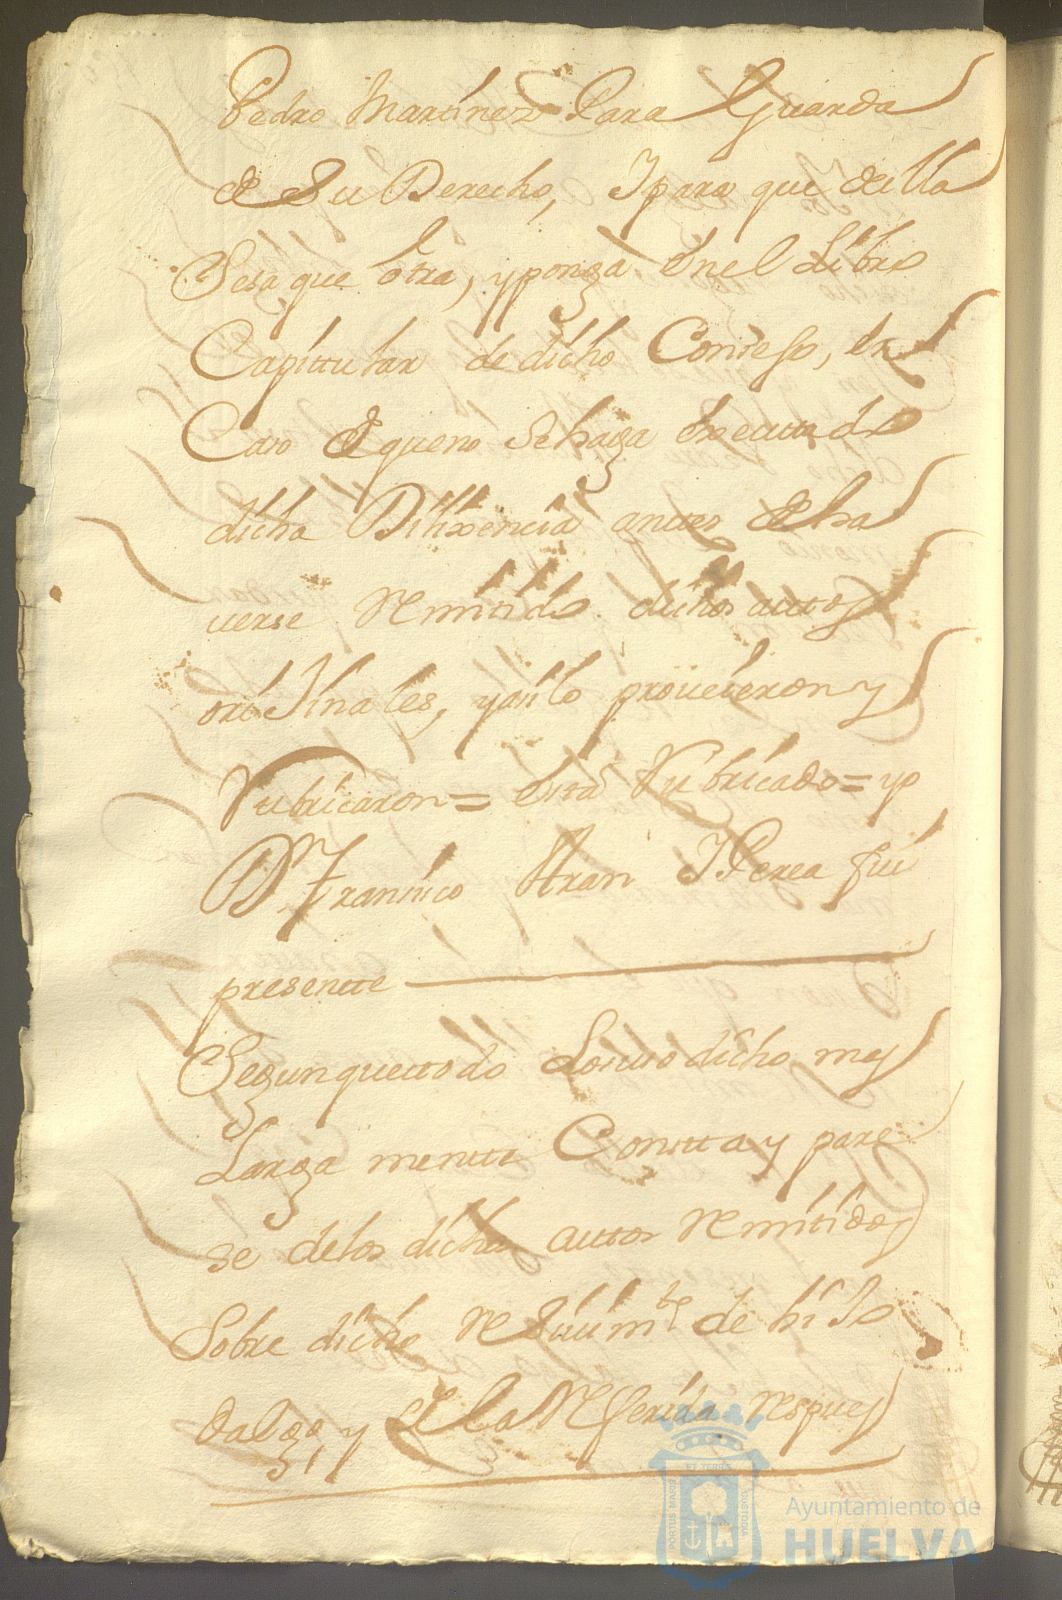 Pedro Martinez Para Guarda
de Su Derecho, Y para que de ella
Sesaque Cotra, y ponga En el Libro
Capittular de dicho Consejo, en
Caso de que no Se haga Executado
dicha Dilixencia anttes de ha
uerse Remitido dichos auttos
oriJinales, y asi lo proueieron y
Rubricaron = esta Rubricado = yo
Dn Franisco Aran Y Perea fui
presentte
Segun que ttodo Lo suso dicho mas
Larga mentte Constta y pare
se de los dichos auttos Remitidos
Sobre dicho Reciuimto de hiJo
dalgo, y de la Referida respues
Ayuntamiento de
HUELVA
PORTUS MARIS
ET TERRÆ
CUSTODIA